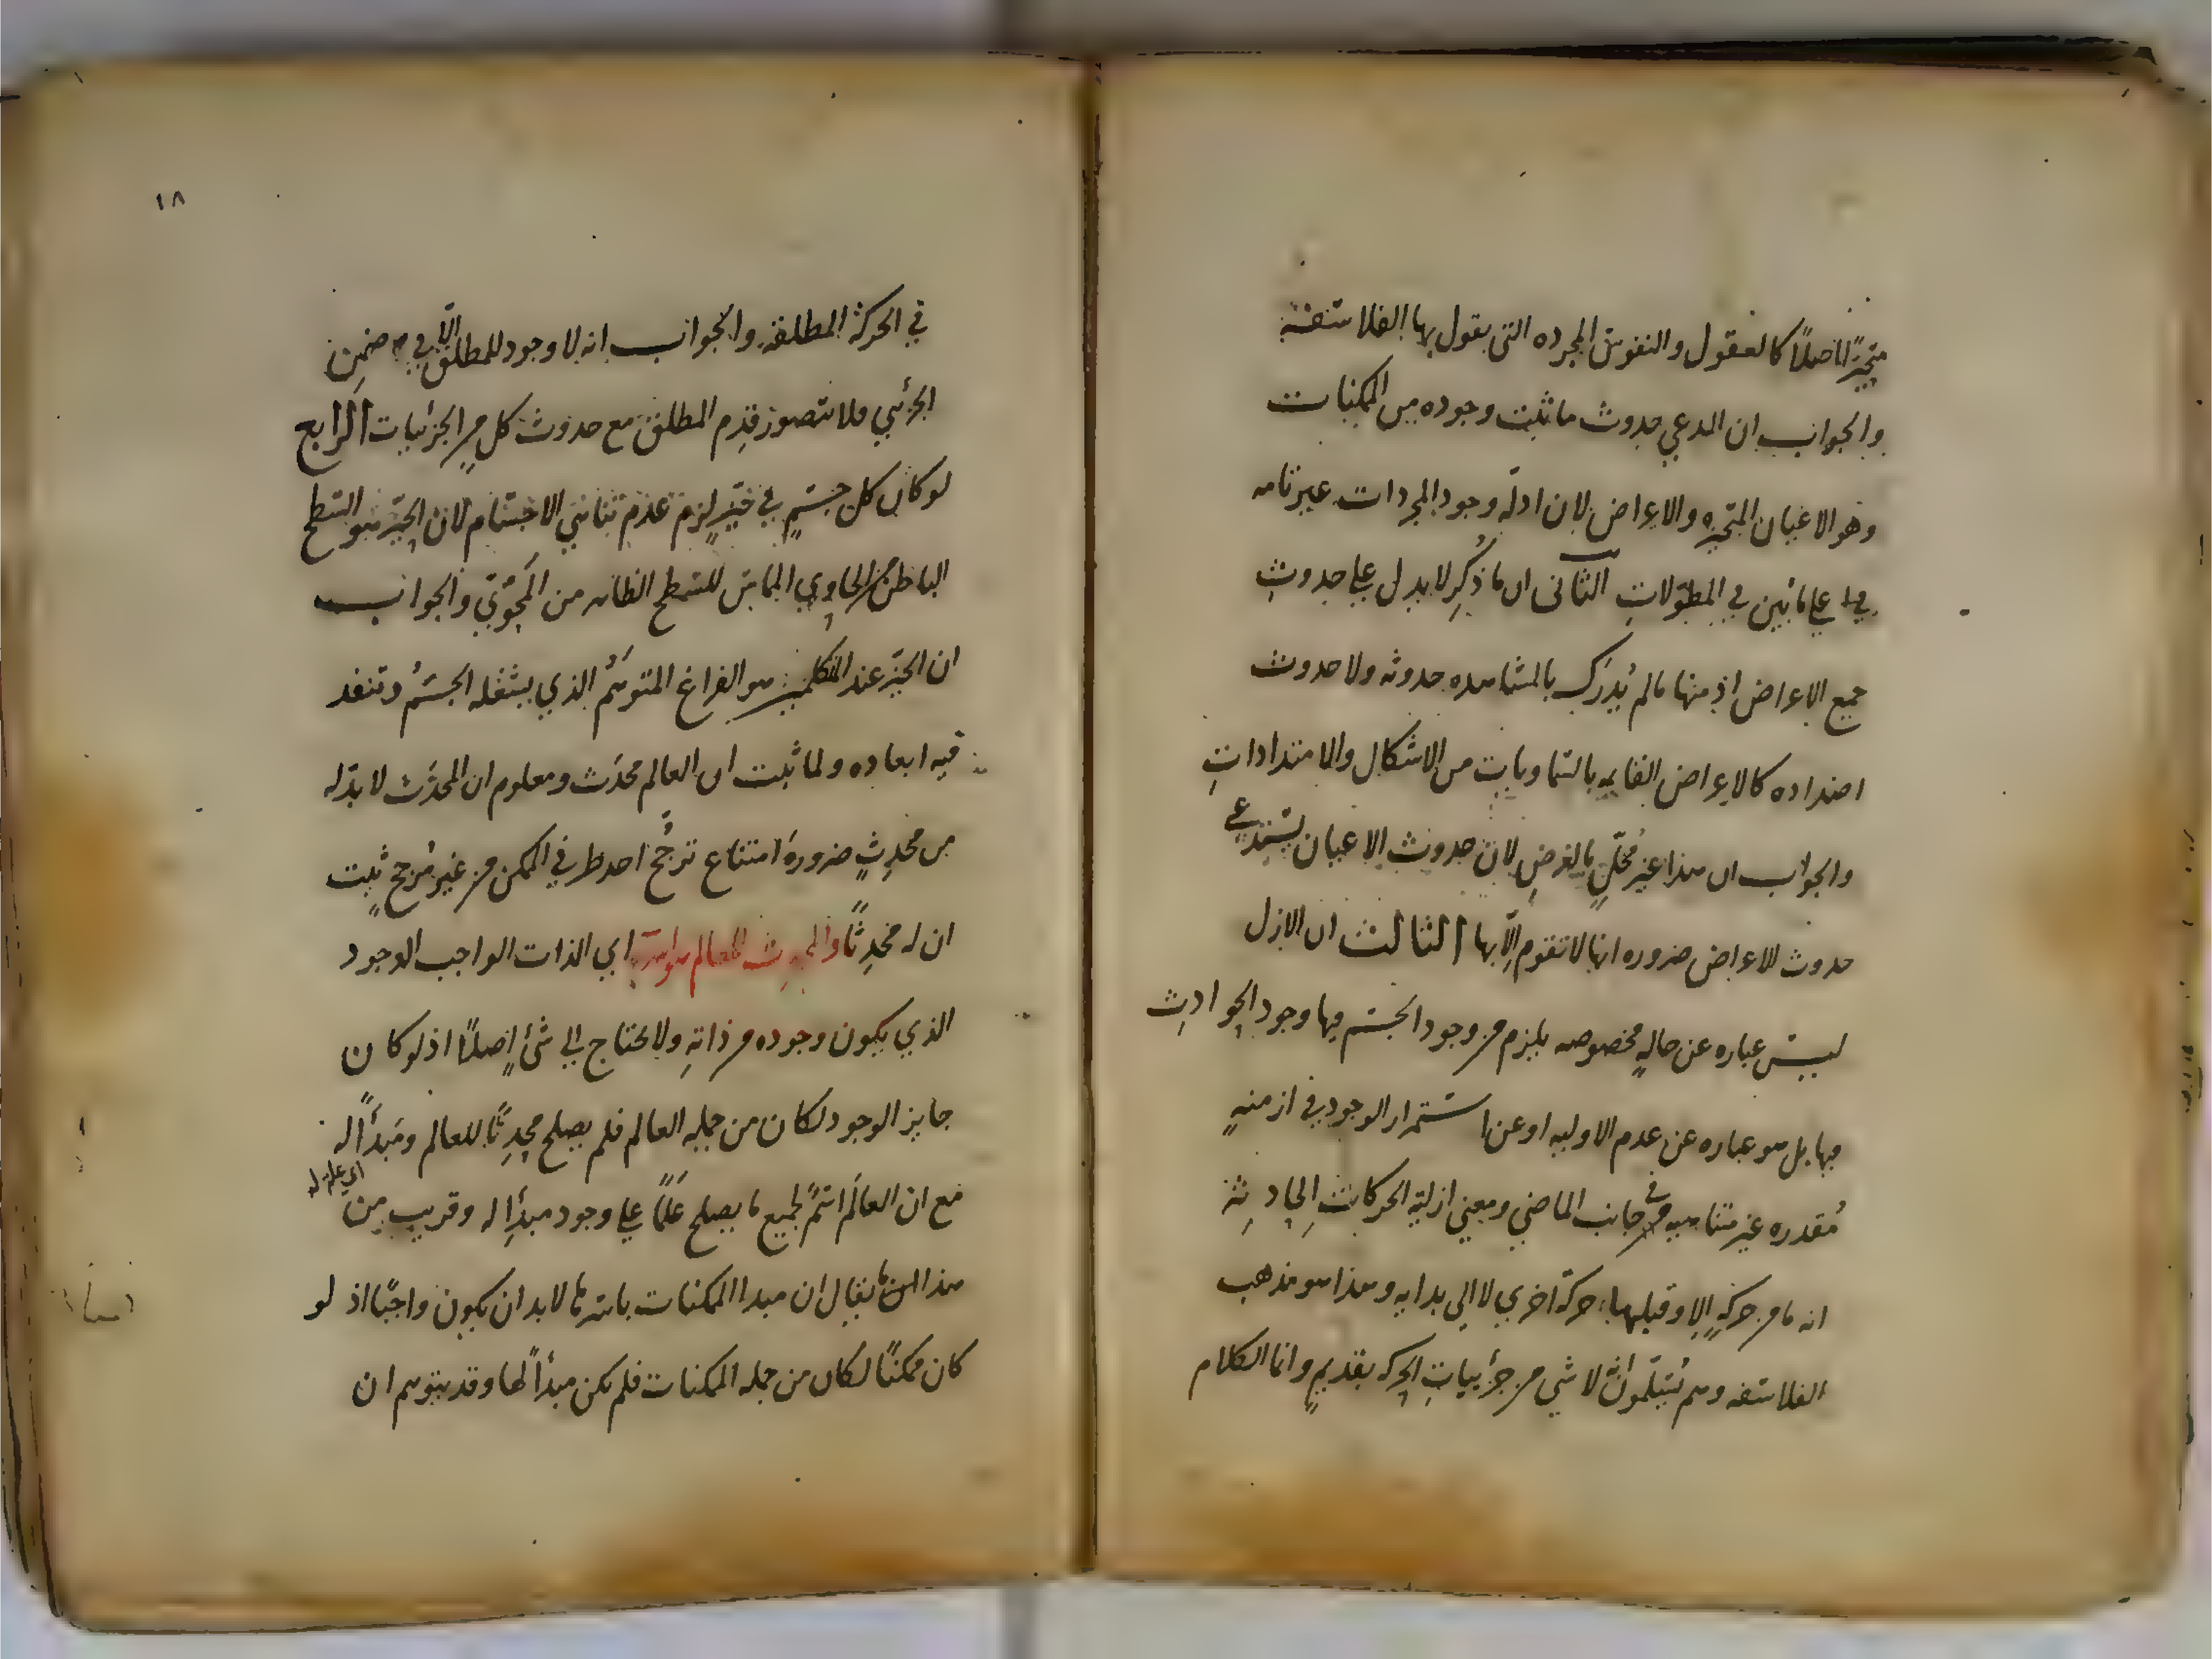 متحيزا اصلًا كالعقول والنفوس المجرده التى يقول بها الفلاسفة
والجواب ان المدعي حدوث ما ثبت وجوده من الممكنات
وهو الاعيان المتحيزه والاعراض لان ادلة وجود المجردات غير تامه
على ما بُين في المطوّلاتِ الثانى ان ما ذُكِر لا يدل على حدوثِ
جميع الاعراض اذ منها مالم يُدرَك بالمشاهده حدوثه ولا حدوث
اضداده كالاعراض القايمه بالسماوياتِ من الاشكال والامتداداتِ
والجواب ان هذا غير مُخلٍّ بالغرضِ لان حدوث الاعيان يستدعي
حدوث الاعراض ضروره انها لا تقوم إلّا بها الثالث ان الازل
ليسَ عباره عن حالةٍ مخصوصه يلزم من وجود الجسم فيها وجود الحوادثِ
فيها بل هو عباره عن عدم الاوليه او عن استمرار الوجود في ازمنةٍ
مُقدره غير متناهيه في جانب الماضي ومعنى ازلية الحركات الحادثة
انه ما من حركةٍ إلا وقبلها حركة اخري لا الى بدايه وهذا هو مذهب
الفلاسفه وهم يُسَلّمون انه لا شي من جزئياتِ الحركه بقديمٍ وانما الكلام
١٨
في الحركة المطلقة والجواب انه لا وجود للمطلق إلّا في ضمنِ
الجزئي فلا يتصور قِدم المطلق مع حدوث كلٍ من الجزئيات الرابع
لو كان كل جسمٍ في حيّزٍ لزم عدم تناهي الاجسام لان الحيّز هو السطح
الباطن من الحاوي المماس للسطح الظاهر من المَحْوِيّ والجواب
ان الحيّز عند المتكلمين هو الفراغ المتوهَّمُ الذي يشغله الجسمُ وتنفد
فيه ابعاده ولما ثبت ان العالم محدَث ومعلوم ان المحدَث لا بدّ له
من محدِثٍ ضرورةَ امتناع ترجُّح احد طرفي الممكن من غير مُرجحٍ ثبت
ان له محدِثًا والمحدِث للعالم هو الله اي الذات الواجب الوجود
الذي يكون وجوده من ذاتهِ ولا يحتاج إلى شئٍ اصلًا اذ لو كان
جايز الوجود لكان من جملة العالم فلم يصلح محدِثًا للعالم ومَبدأً له
مع ان العالَم اسمٌ لجميع ما يصلح عَلَمًا على وجود مبدأٍ له وقريب من
هذا ما يقال ان مبدا الممكنات باسرها لا بد ان يكون واجبًا اذ لو
كان ممكنًا لكان من جمله الممكنات فلم يكن مبدأً لها وقد يتوهم ان